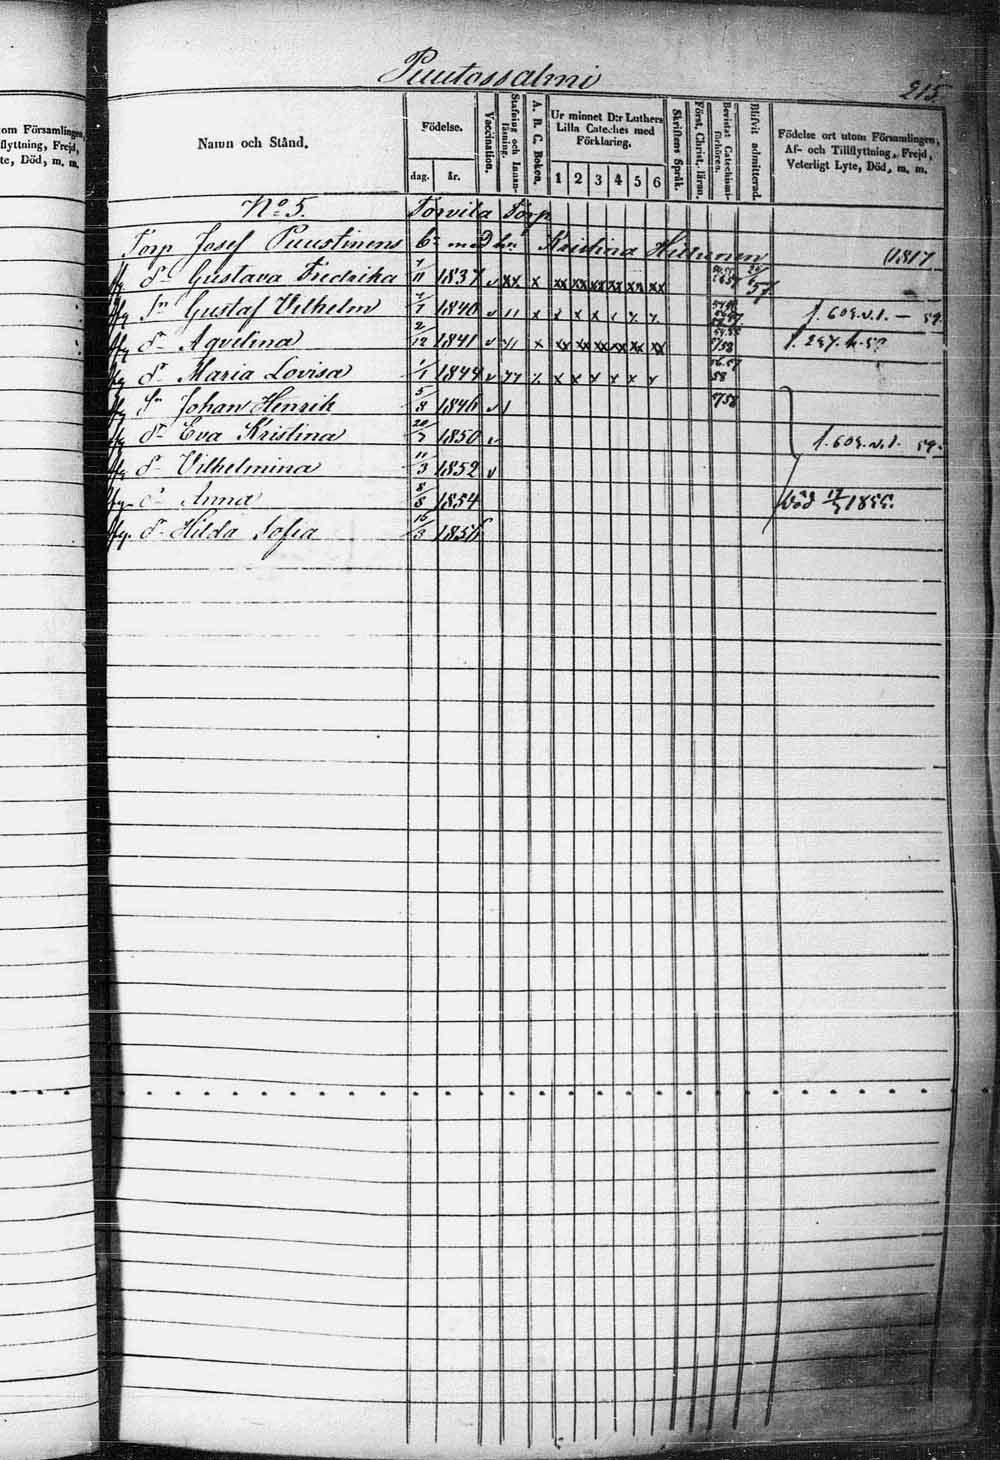 Puutossalmi
215.
om Församlingen,
flyttning, Frejd,
te, Död, m. m.
Namn och Stånd.
Födelse.
dag. år.
Vaccination.
Stafning och Innanläsning.
A. B. C. Boken.
Ur minnet D:r Luthers Lilla Cateches med Förklaring.
1 2 3 4 5 6
Skriftens Språk.
Först. Christ. läran.
Bevistat Catechismiförhören.
Blifvit admitterad.
Födelse ort utom Församlingen, Af- och Tillflyttning, Frejd, Veterligt Lyte, Död, m. m.
No 5. Torvila Torp
Torp Josef Puustinens b:n med hu Kristina Hiltunen (1817
fg dr Gustava Fredrika 7/11 1837 v xx x xx xx xx xx xx xx
fg Sn Gustaf Vilhelm 7/1 1840 v 11 x x x x f. 602. v. 1. — 59.
fg dr Aqvilina 2/12 1841 v x xx xx xx xx xx xx 7/58
fg dr Maria Lovisa 1/1 1844 v x x x x x 56.57 58
fg Sn Johan Henrik 5/8 1846 v 1 7/58
fg dr Eva Kristina 20/7 1850 v f. 602. v. 1. 59.
fg dr Vilhelmina 11/3 1852 v
fg dr Anna 8/5 1854 död 1855.
fg. dr Hilda Sofia 15/3 1856